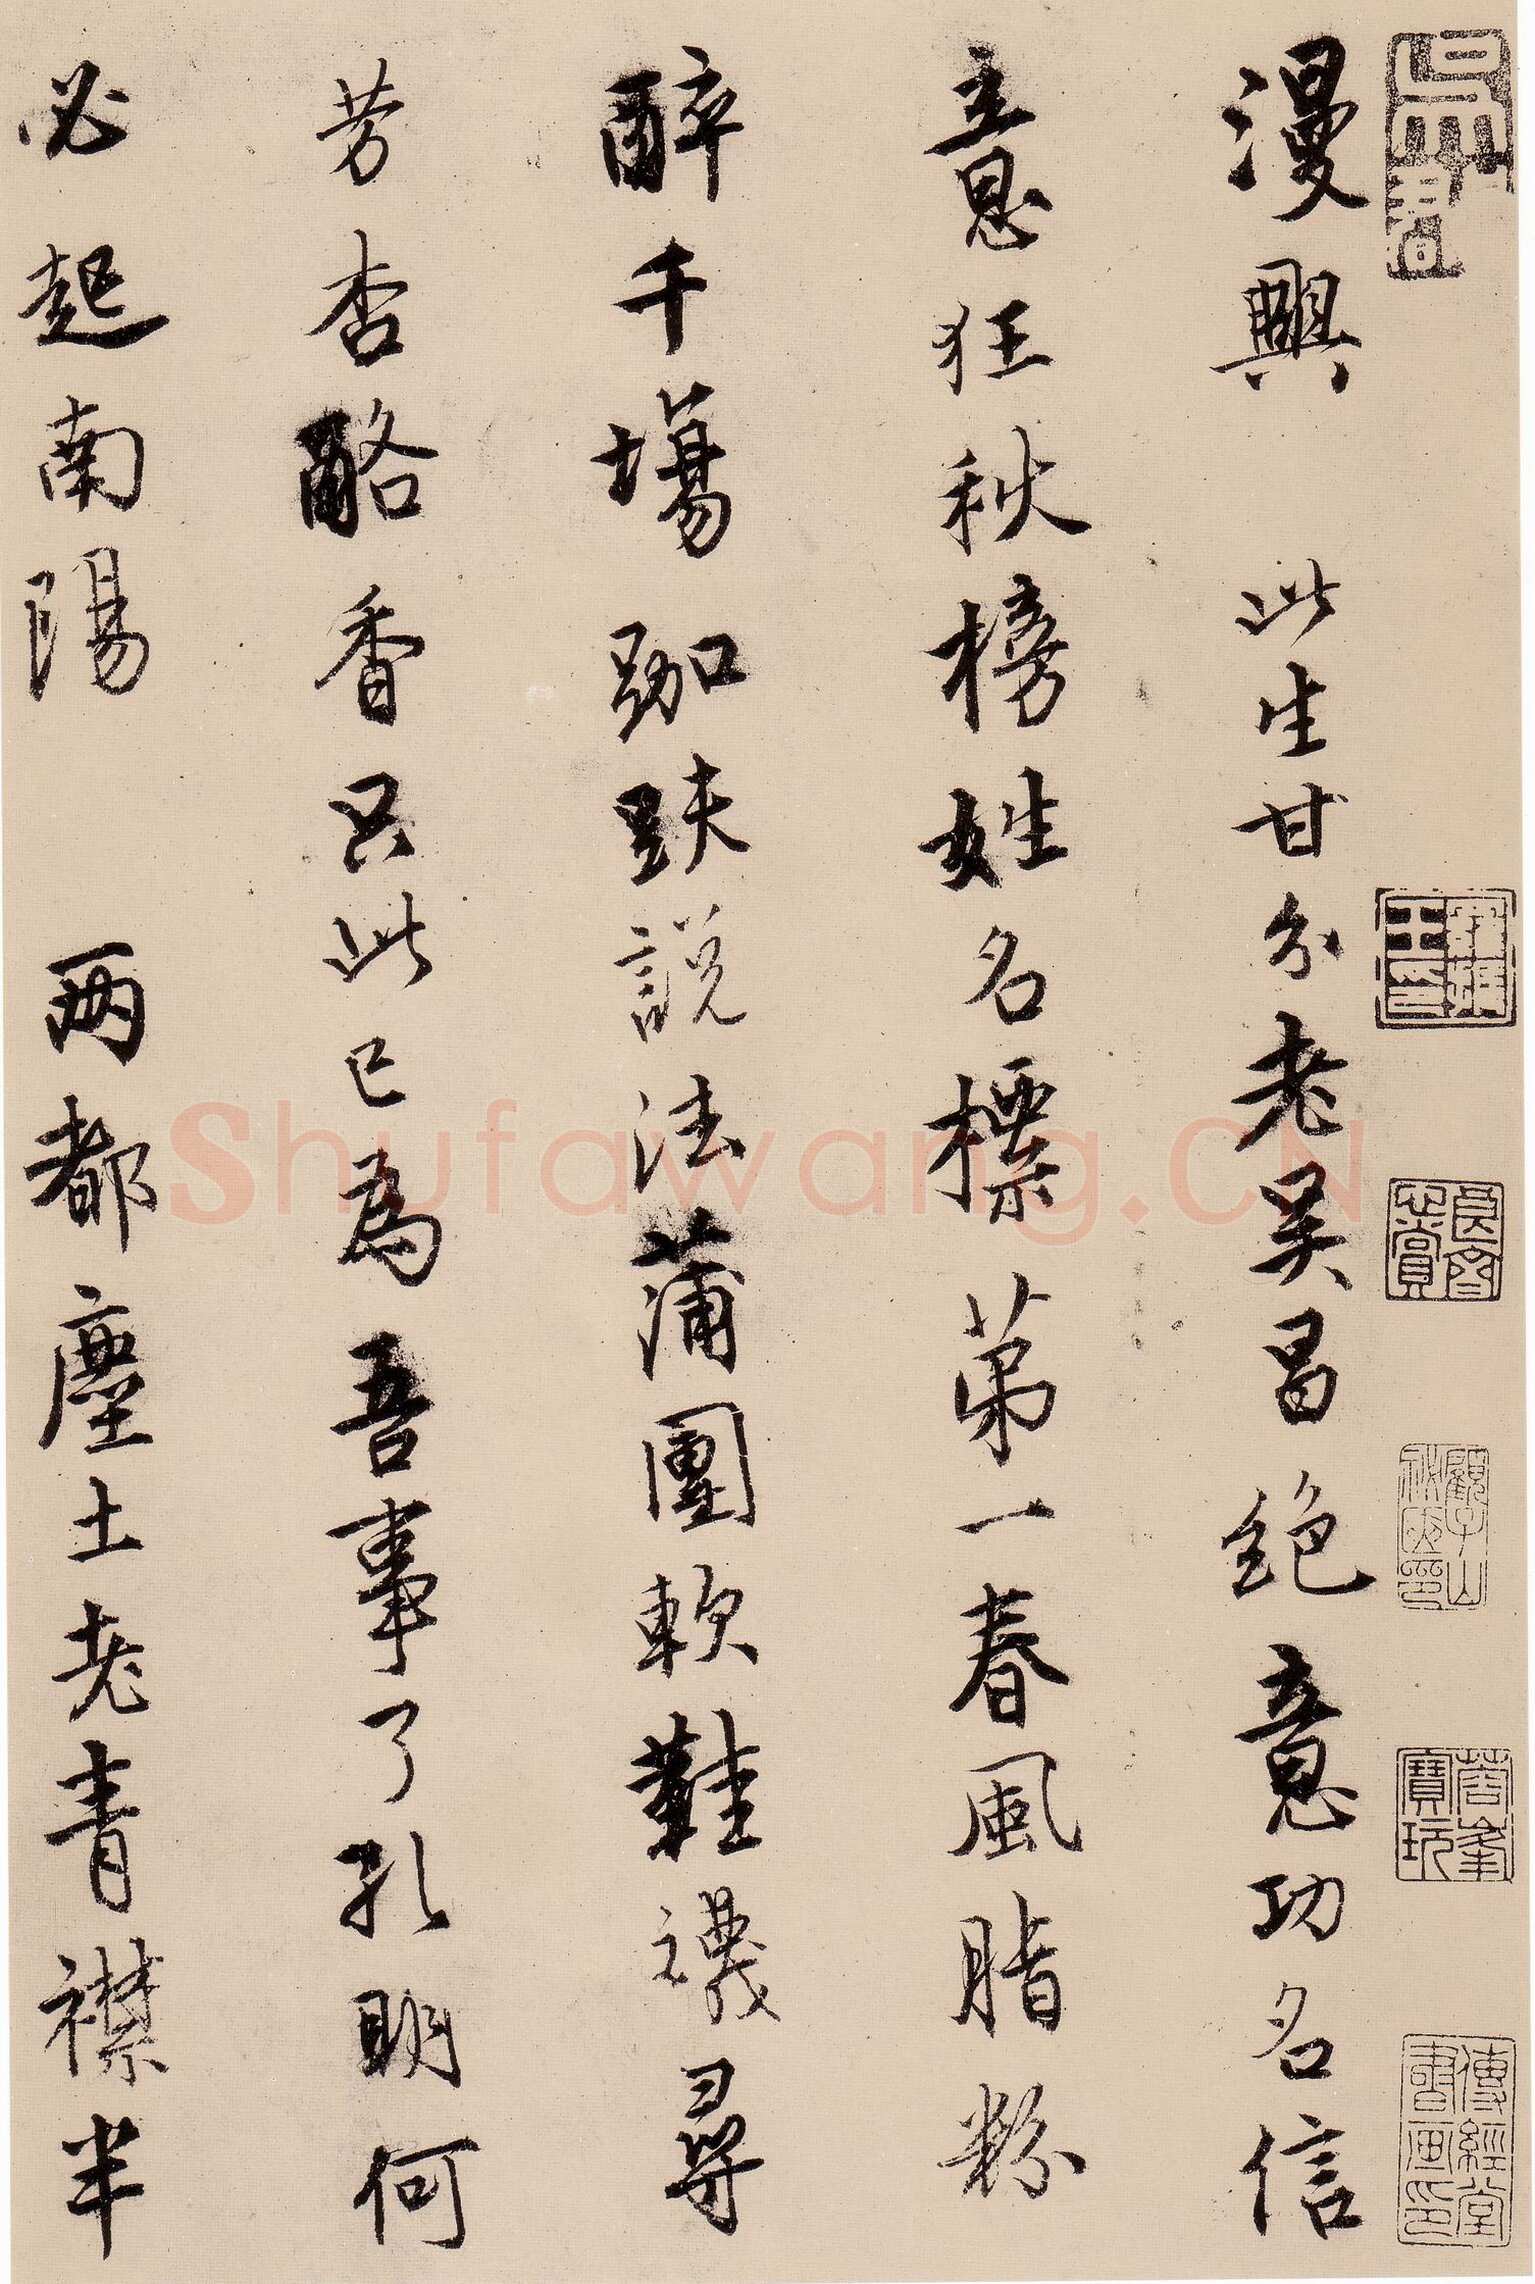 漫興 此生甘分老吴昌絶意功名信
意狂秋榜姓名標苐一春風脂粉
醉千場跏趺說法蒲團軟鞋襪尋
芳杏酪香只此已為吾事了孔明何
必起南陽 兩都塵土老青襟半
Shufawang.CN